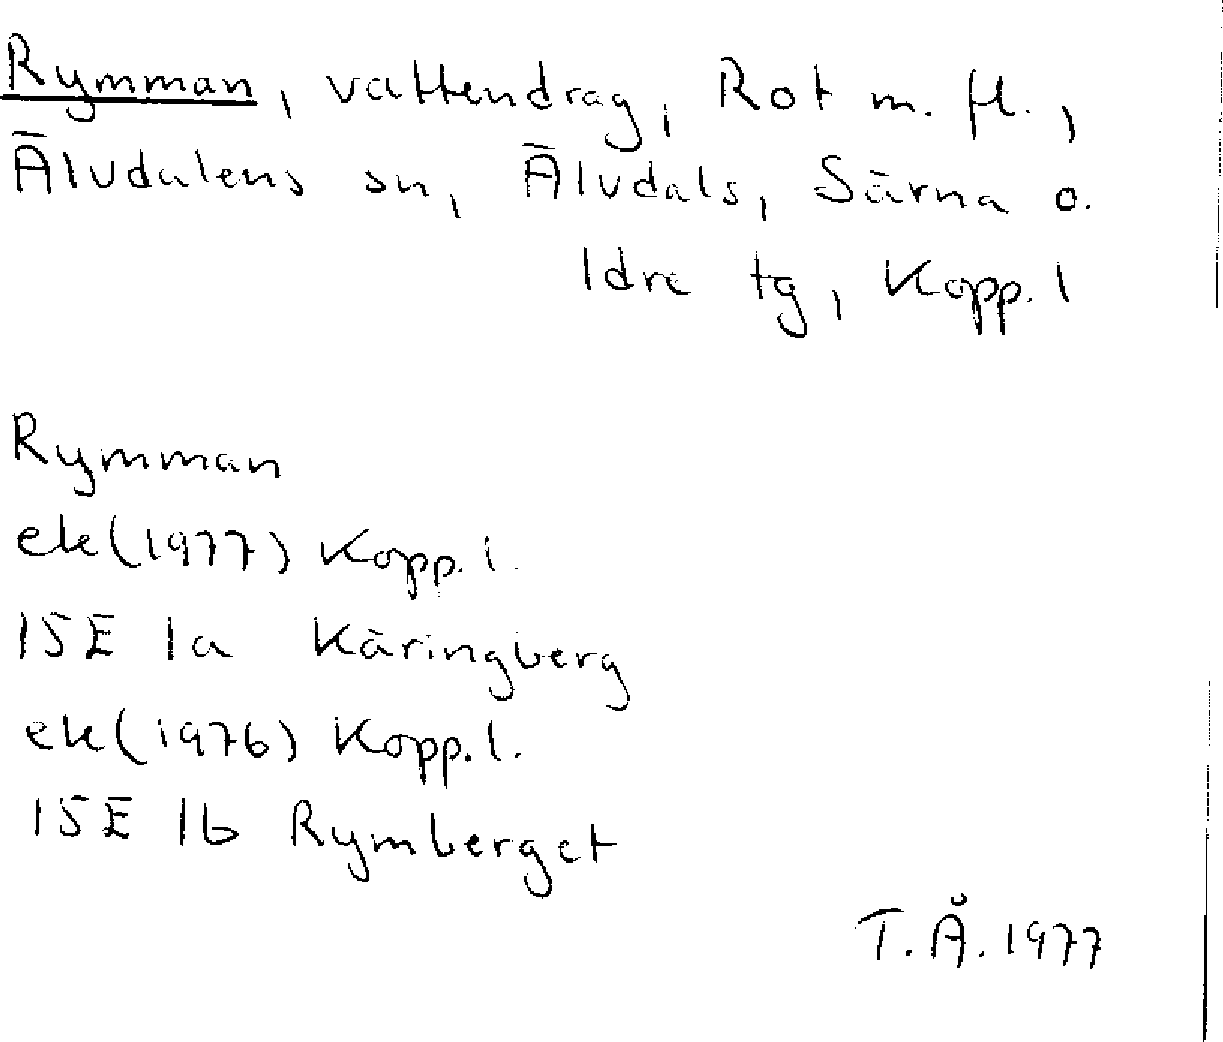 Rymman, vattendrag, Rot m. fl.,
Älvdalens sn, Älvdals, Särna o.
Idre tg, Kopp. l
Rymman
ek(1977) Kopp. l.
15E 1a Käringberg
ek(1976) Kopp. l.
15E 1b Rymberget
T. Å. 1977